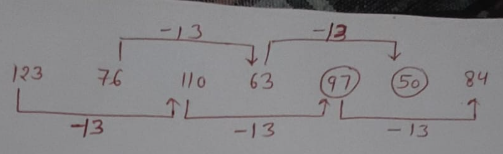 -13 -13
123 76 110 63 97 50 84
-13 -13 -13